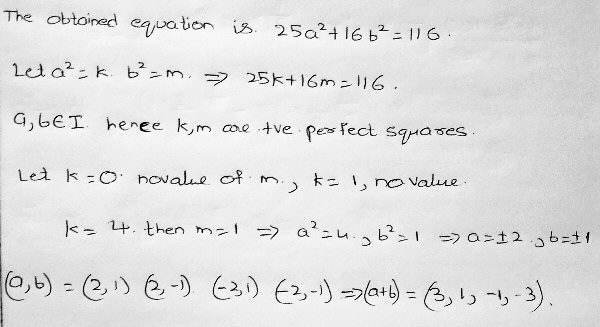 The obtained equation is. 25a²+16b²=116.
Let a²=k. b²=m. ⇒ 25k+16m=116.
a,b∈I. hence k,m are +ve perfect squares.
Let k=0. novalue of m., k=1, no value.
k=4. then m=1 ⇒ a²=4., b²=1 ⇒ a=±2, b=±1
(a,b) = (2,1) (2,-1). (-2,1) (-2,-1) ⇒ (a+b) = (3,1,-1,-3).